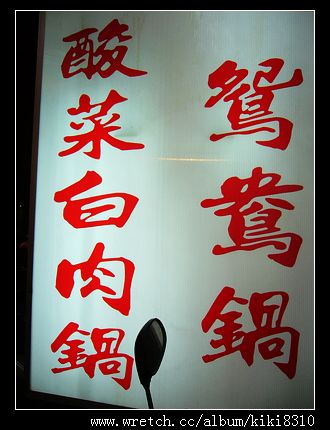 鴛鴦鍋
酸菜白肉鍋
www.wretch.cc/album/kiki8310